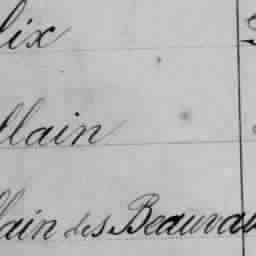 lix
llain
lain des Beauvau